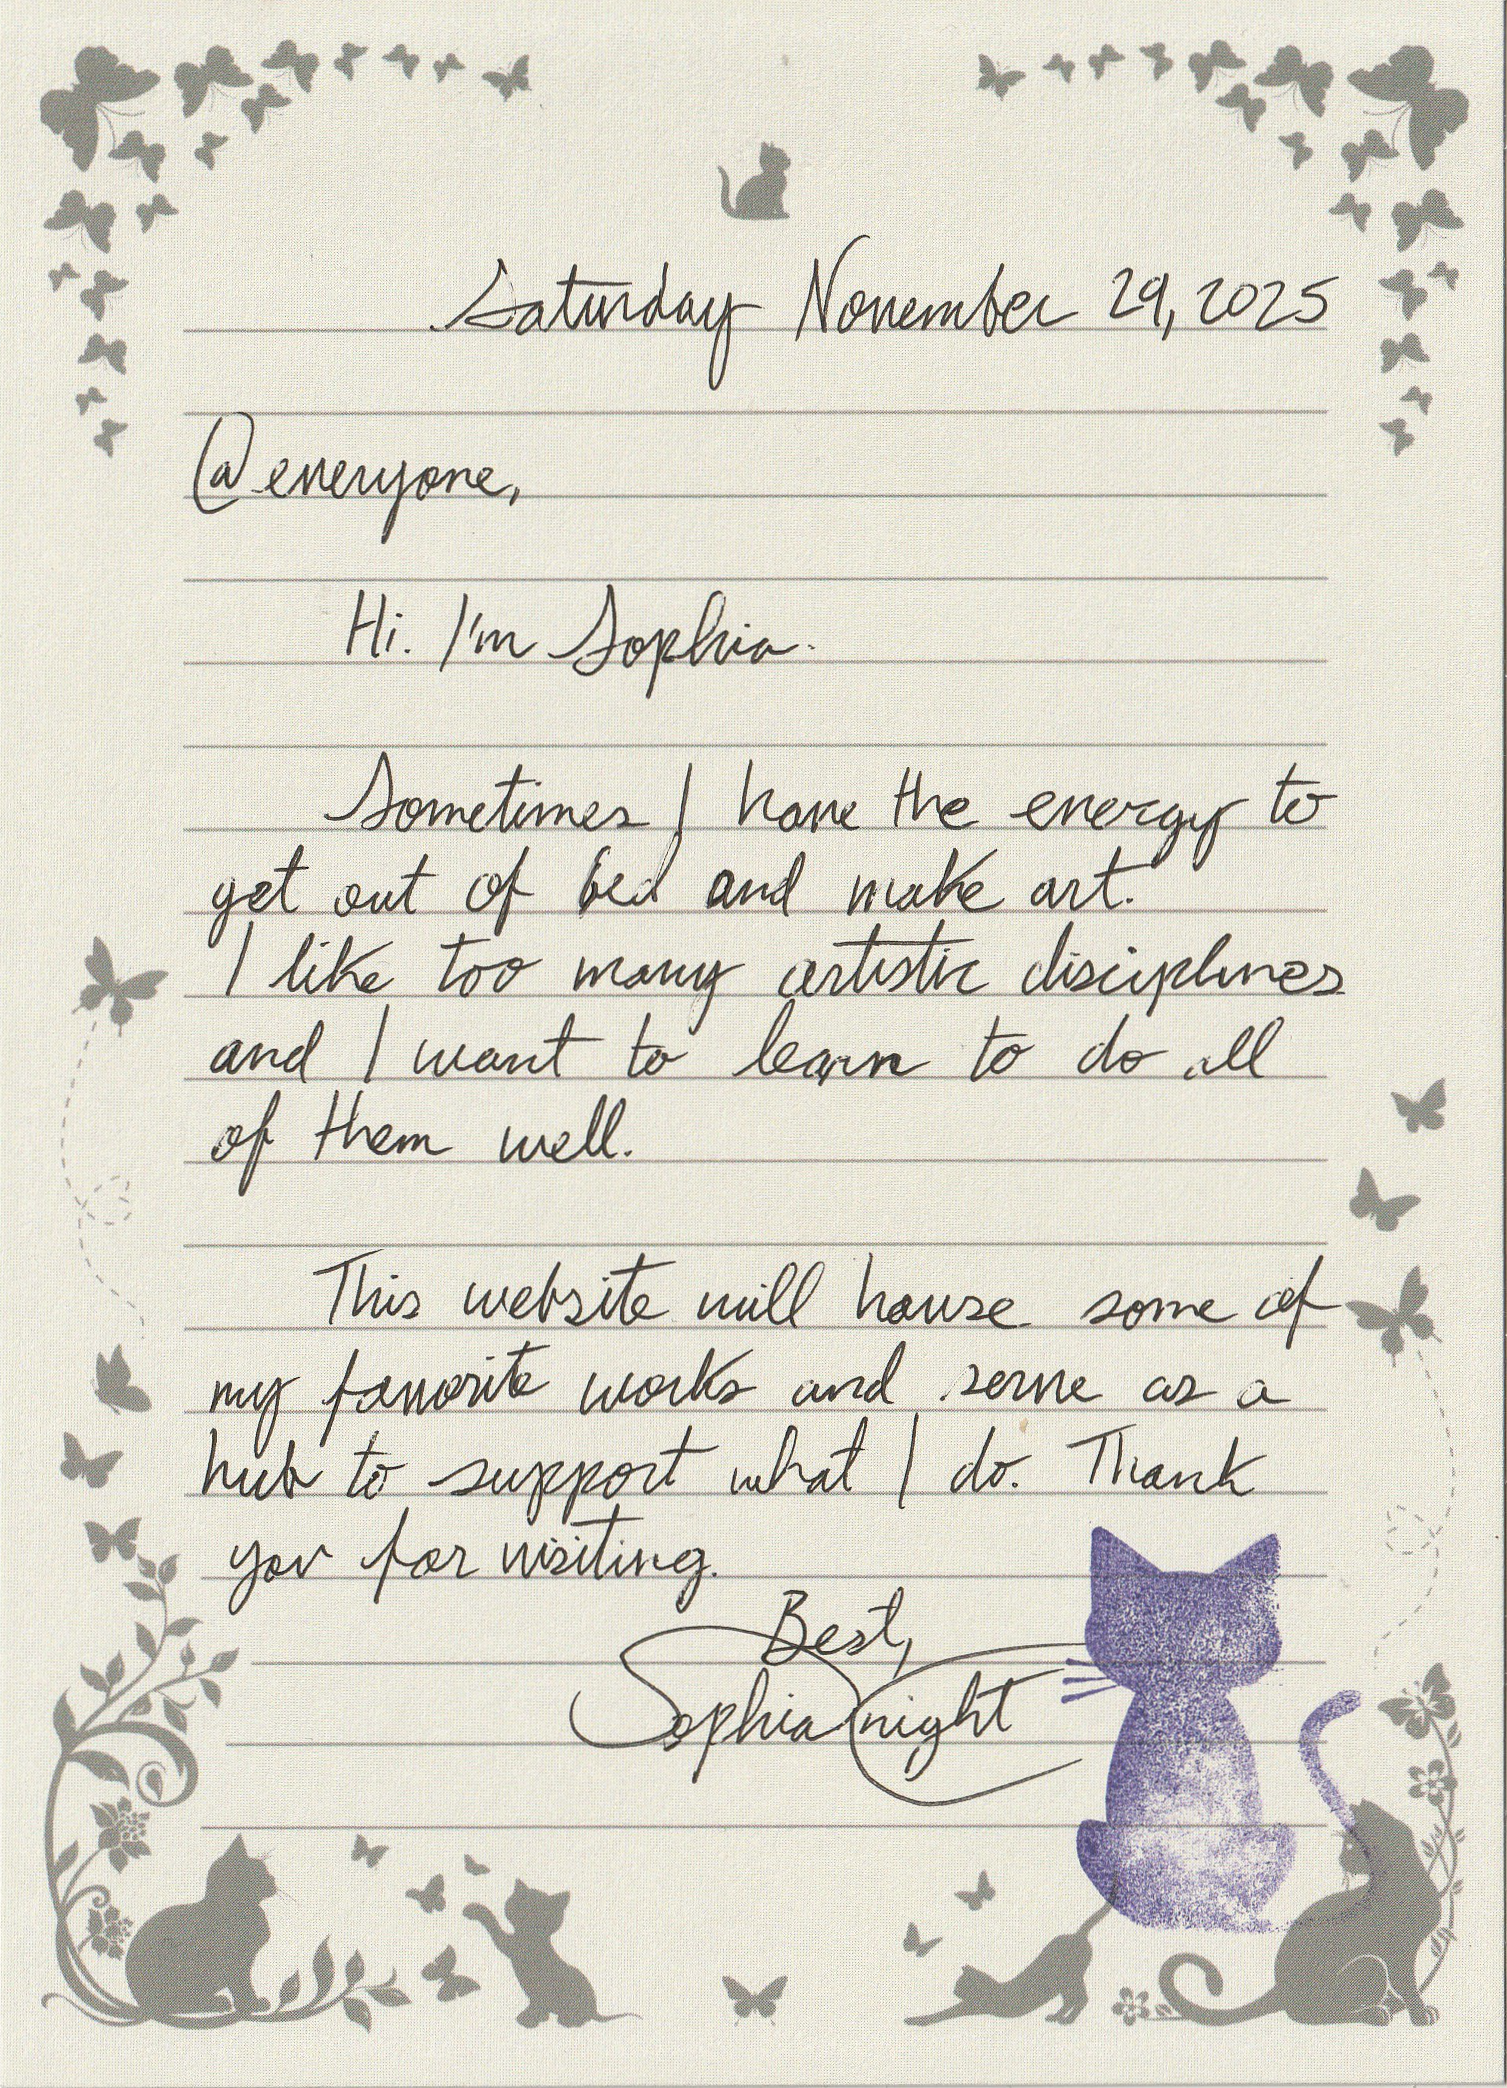 Saturday November 29, 2025
@everyone,
Hi. I'm Sophia.
Sometimes I have the energy to
get out of bed and make art.
I like too many artistic disciplines
and I want to learn to do all
of them well.
This website will house some of
my favorite works and serve as a
hub to support what I do. Thank
you for visiting.
Best,
Sophia Night